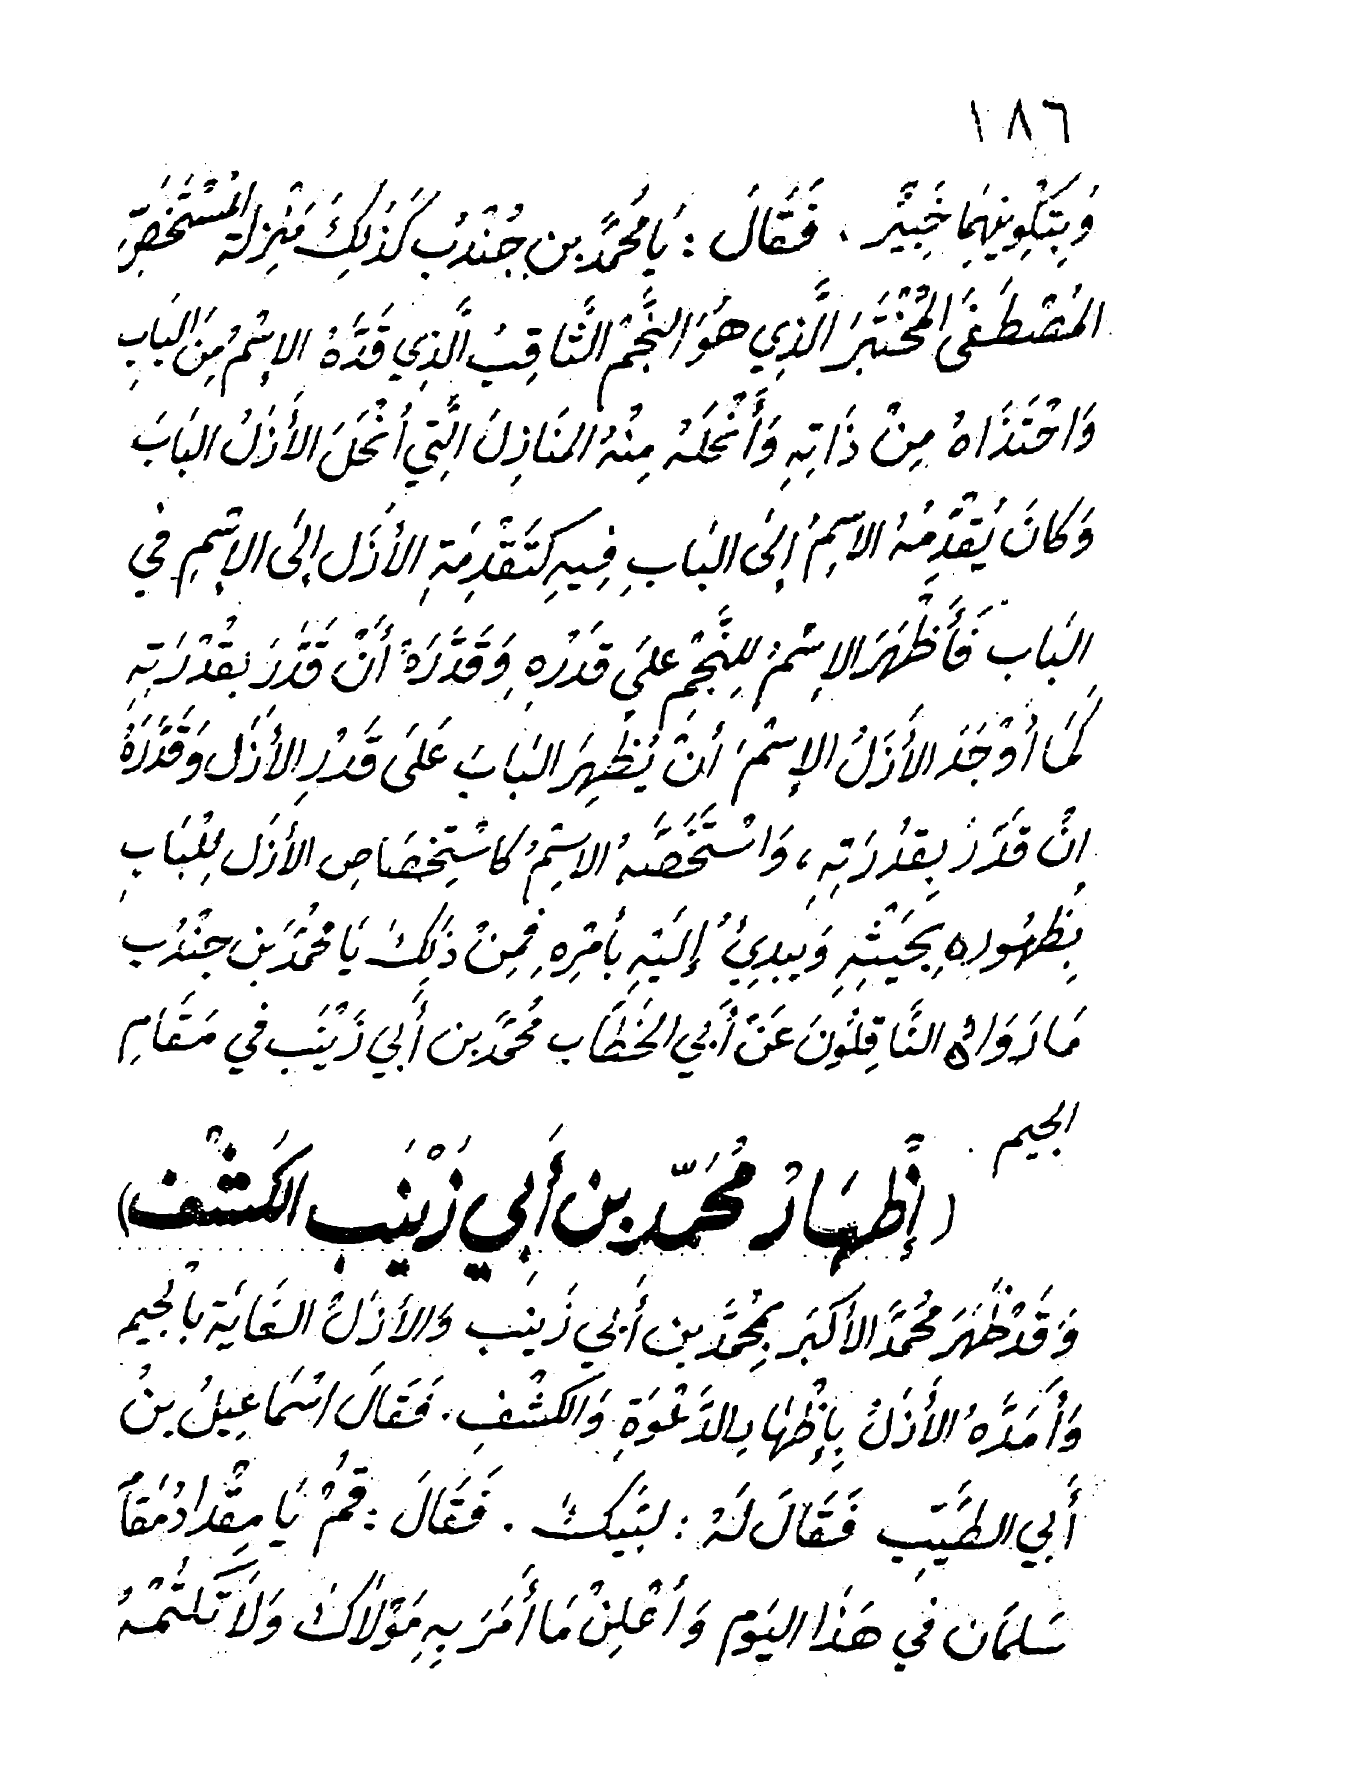 ١٨٦
وَبِتَكْوِينِهِمَا خَبِيْر . فَقَالَ : يَا مُحَمَّد بن جُنْدُب كَذَلِكَ مَنْزِلة المُسْتَخَصِّ
المُصْطَفَى المُخْتَبَرَ الَّذِي هُوَ النَّجْمُ الثَّاقِبُ الَّذِي قَدَّهُ الإسْمُ مِنَ البَابِ
وَاحْتَذَاهُ مِنْ ذَاتِهِ وَأَنْحَلَهُ مِنْهُ المَنَازِلَ الَّتِي أنْحَلَ الأَزَلُ البَابَ
وَكَانَ يُقدِّمُهُ الاسمُ إلى البَابِ فِيهِ كَتَقْدِمَةِ الأزَل إلى الإسْمِ في
البَاب فَأَظْهَرَ الإسْمُ لِلنَّجْمِ عَلَى قدَرهِ وَقَدَّرَهُ أنْ قَدَّرَ بِقُدْرَتِهِ
كَمَا أوْجَدَ الأزَلُ الإسْمَ أنْ يُظْهِرَ البَابَ عَلَى قَدْرِ الأزَل وَقَدَّرَهُ
انْ قَدَّرَ بِقدُرَتِهِ ، وَاسْتَخَصَّهُ الاسْمُ كَاسْتِخصَاصِ الأزَل لِلْبَابِ
بِظهُورهِ بِحَيْثِهِ وَيبدِئُ إلَيهِ بأمْرِهِ فمِنْ ذَلِكَ يَا مُحمَّد بن جنْدُب
مَا رَوَاهُ النَّاقِلُونَ عَنْ أَبي الخَطَّاب مُحمَّد بن أَبي زَيْنَب في مَقَامِ
الجيم .
(إِظهَارُ مُحَمّد بن أَبي زَيْنَب الكَشْف)
وَقَدْ ظَهَرَ مُحَمَّد الأكبَر بمُحَمَّد بن أَبي زَينَب وَالأزَلُ الغَايَة بالْجيم
وَأمَدَّهُ الأَزَلُ بِإِظْهَارِ الدَّعْوَةِ وَالكَشْفِ . فَقَالَ اسْمَاعِيلُ بنُ
أَبي الطَيِّب فَقَالَ لَهُ : لبَّيكَ . فَقَالَ : قمُْ يَا مِقْدادُ مَقَامَ
سَلمَان في هَذَا اليَوم وَأعْلِنْ مَا أمَرَ بهِ مَوْلاَكَ وَلاَ تَكتُمْهُ